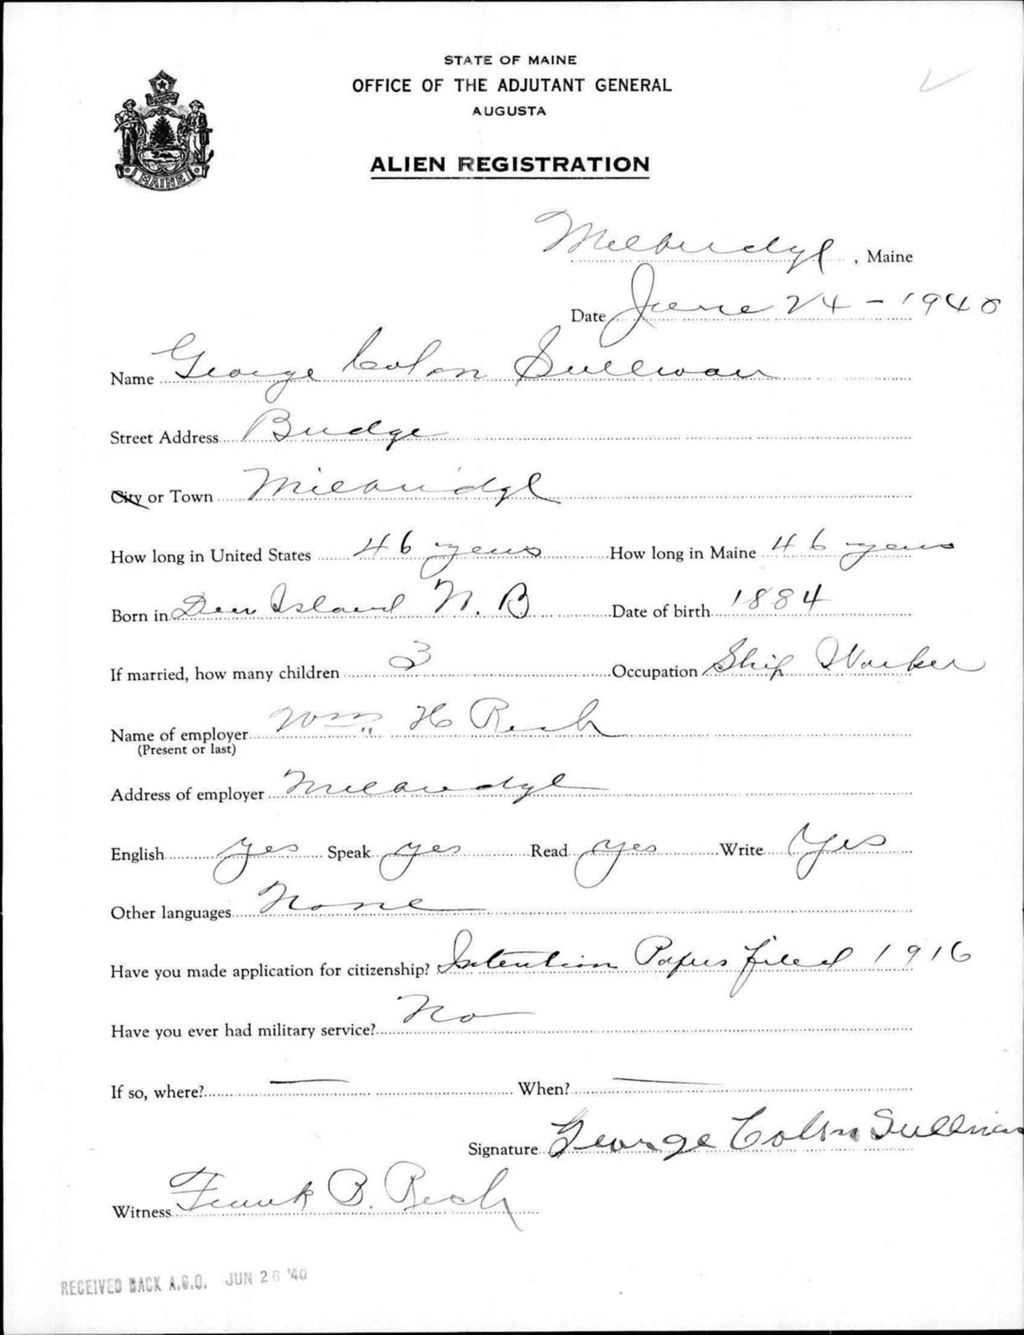 STATE OF MAINE
OFFICE OF THE ADJUTANT GENERAL
AUGUSTA
ALIEN REGISTRATION
MAINE
Milbridge, Maine
Date June 24 - 1940
Name George Colon Sullivan
Street Address Bridge
City or Town Milbridge
How long in United States 46 years How long in Maine 46 years
Born in Deer Island N. B. Date of birth 1884
If married, how many children 3 Occupation Ship Worker
Name of employer Wm H
(Present or last)
Address of employer Milbridge
English yes Speak yes Read yes Write Yes
Other languages None
Have you made application for citizenship? Intention Papers filed 1916
Have you ever had military service? No
If so, where? — When? —
Signature George Colon Sullivan
Witness Frank B.
RECEIVED BACK A.G.O. JUN 26 '40